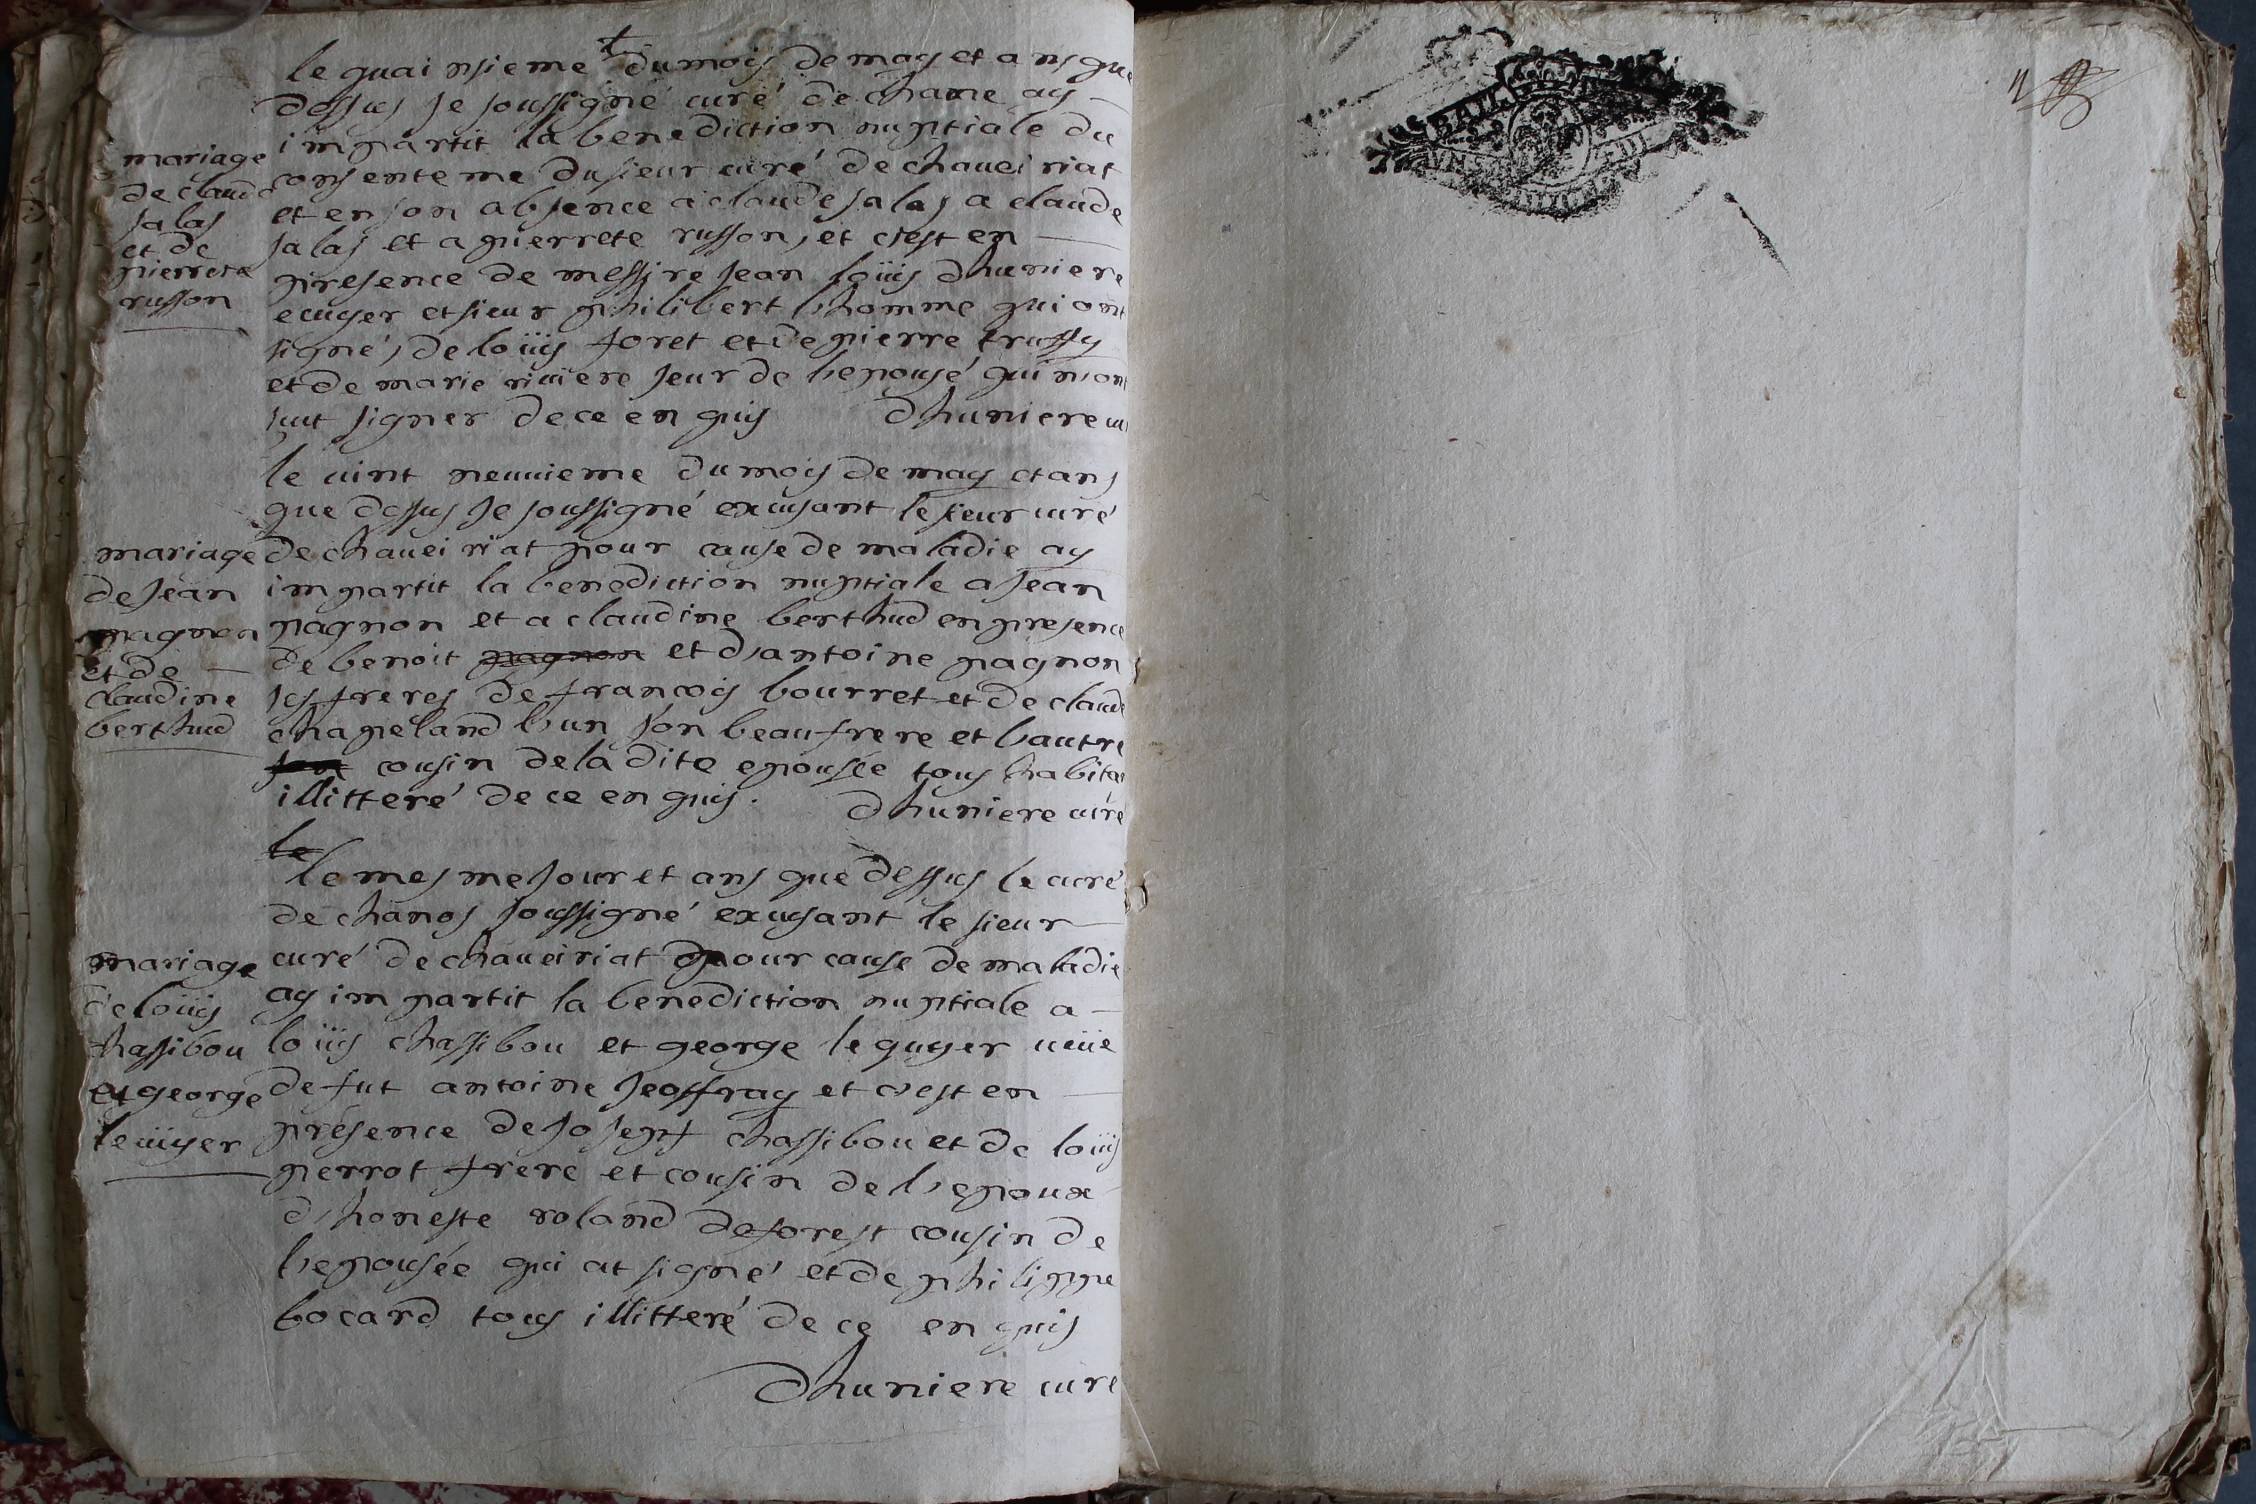 le quainsieme du mois de may et ans que
dessus Je soussigné curé de chane ay
impartit la benediction nuptiale du
consenteme du sieur curé de chaveiriat
et en son absence a claude salas a claude
salas et a pierrete russon, et c'est en
presence de messire Jean loüis dhuniere
ecuyer et sieur philibert l'homme qui ont
signé, de loüis foret et de pierre truffy
et de marie riviere seur de l'epousé qui n'ont
sçut signer de ce enquis dhuniere cu
mariage
de claude
salas
et de
pierrete
russon
le vint neuvieme du mois de may et ans
que dessus Je soussigné excusant le sieur curé
de chaveiriat pour cause de maladie ay
impartit la benediction nuptiale a Jean
pagnon et a claudine berthud en presence
de benoit pagnon et d'antoine pagnon
ses freres de francois bourret et de claude
chapeland l'un son beaufrere et l'autre
son cousin de ladite epousée tous habitan
illitteré de ce enquis. dhuniere curé
mariage
de Jean
pagnon
et de
claudine
berthud
le
le mesme Jour et ans que dessus le curé
de chanos soussigné excusant le sieur
curé de chaveiriat pour cause de maladie
ay impartit la benediction nuptiale a
loüis chassibou et george lequyer veüe
de fut antoine Jeoffray et c'est en
présence de Joseph chassibou et de loüis
perrot frere et cousin de l'epoux
d'honeste roland deforest cousin de
l'epousée qui at signé et de philippe
bocard tous illitteré de ce enquis
dhuniere curé
mariage
de loüis
chassibou
et george
lecuyer